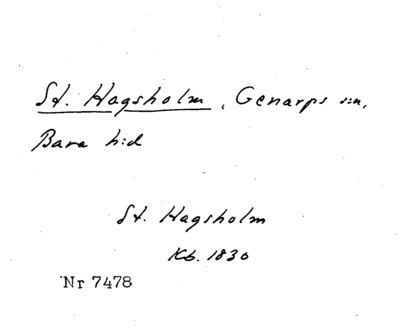 St. Hagsholm, Genarps s:n,
Bara h:d
St. Hagsholm
Kb. 1830
Nr 7478